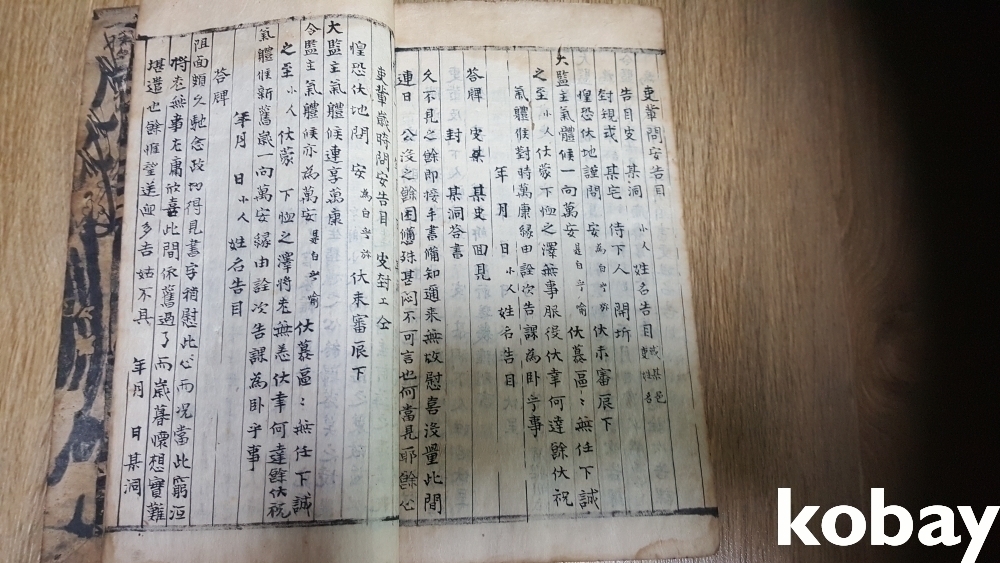 吏輩問安告目
小人 姓名告目 或某邑吏姓名
告目吏 某洞
封規或 某宅 侍下人 開坼
惶恐伏地謹問 安 為白乎旀 伏未審辰下
大監主氣體候一向萬安 是白乎喻 伏慕區〻無任下誠
之至 小人 伏蒙下恤之澤無事服役伏幸何達餘伏祝
氣體候對時萬康緣由詮次告課為卧乎事
年 月 日 小人 姓名告目
答牌 吏某 某吏 回見
封 某洞答書
久不見之餘即接手書備知邇來無故慰喜沒量此間
連日 公沒之餘困憊殊甚悶不可言也何當見耶餘心
吏輩歲時問安告目 皮封上仝
惶恐伏地問 安 為白乎旀 伏未審辰下
大監主氣體候連享萬康
令監主氣體候亦為萬安 是白乎喻 伏慕區〻無任下誠
之至 小人 伏蒙 下恤之澤將老無恙伏幸何達餘伏祝
氣體候新舊歲一向萬安緣由詮次告課為卧乎事
年月 日 小人 姓名告目
答牌
阻面頗久馳念政切得見書字稍慰此心而況當此窮沍
將老無事尤庸欣喜此間依舊過了而歲暮懷想實難
堪遣也餘惟望送迎多吉姑不具
年月 日 某洞
kobay